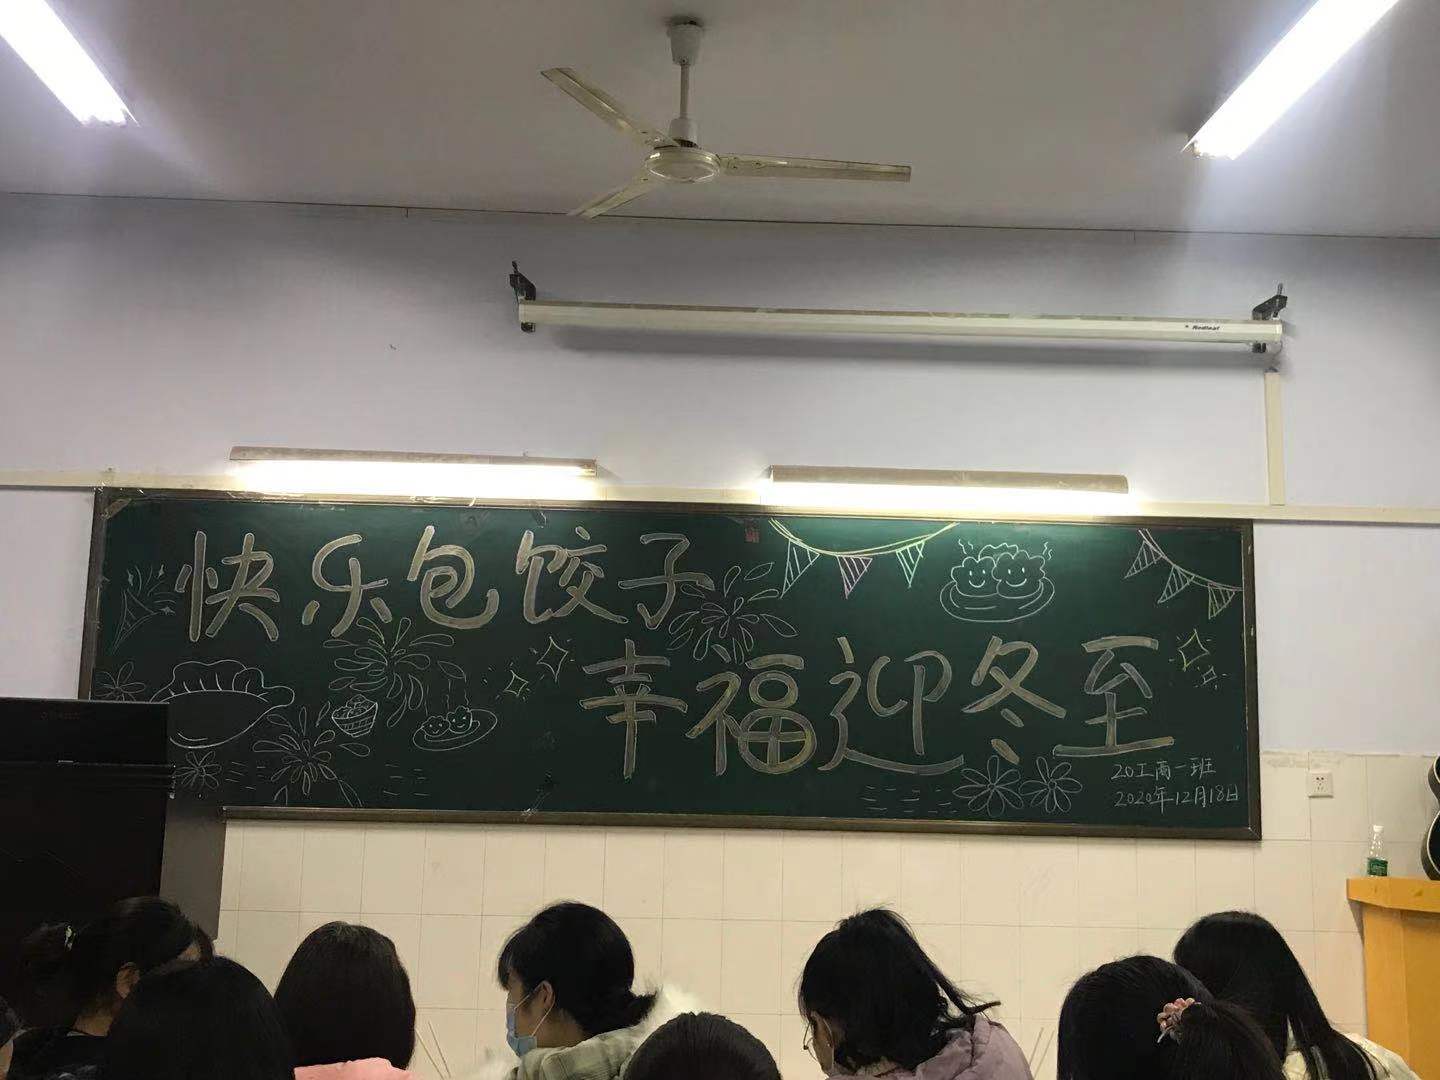 Redleaf
快乐包饺子
幸福迎冬至
20工商一班
2020年12月18日